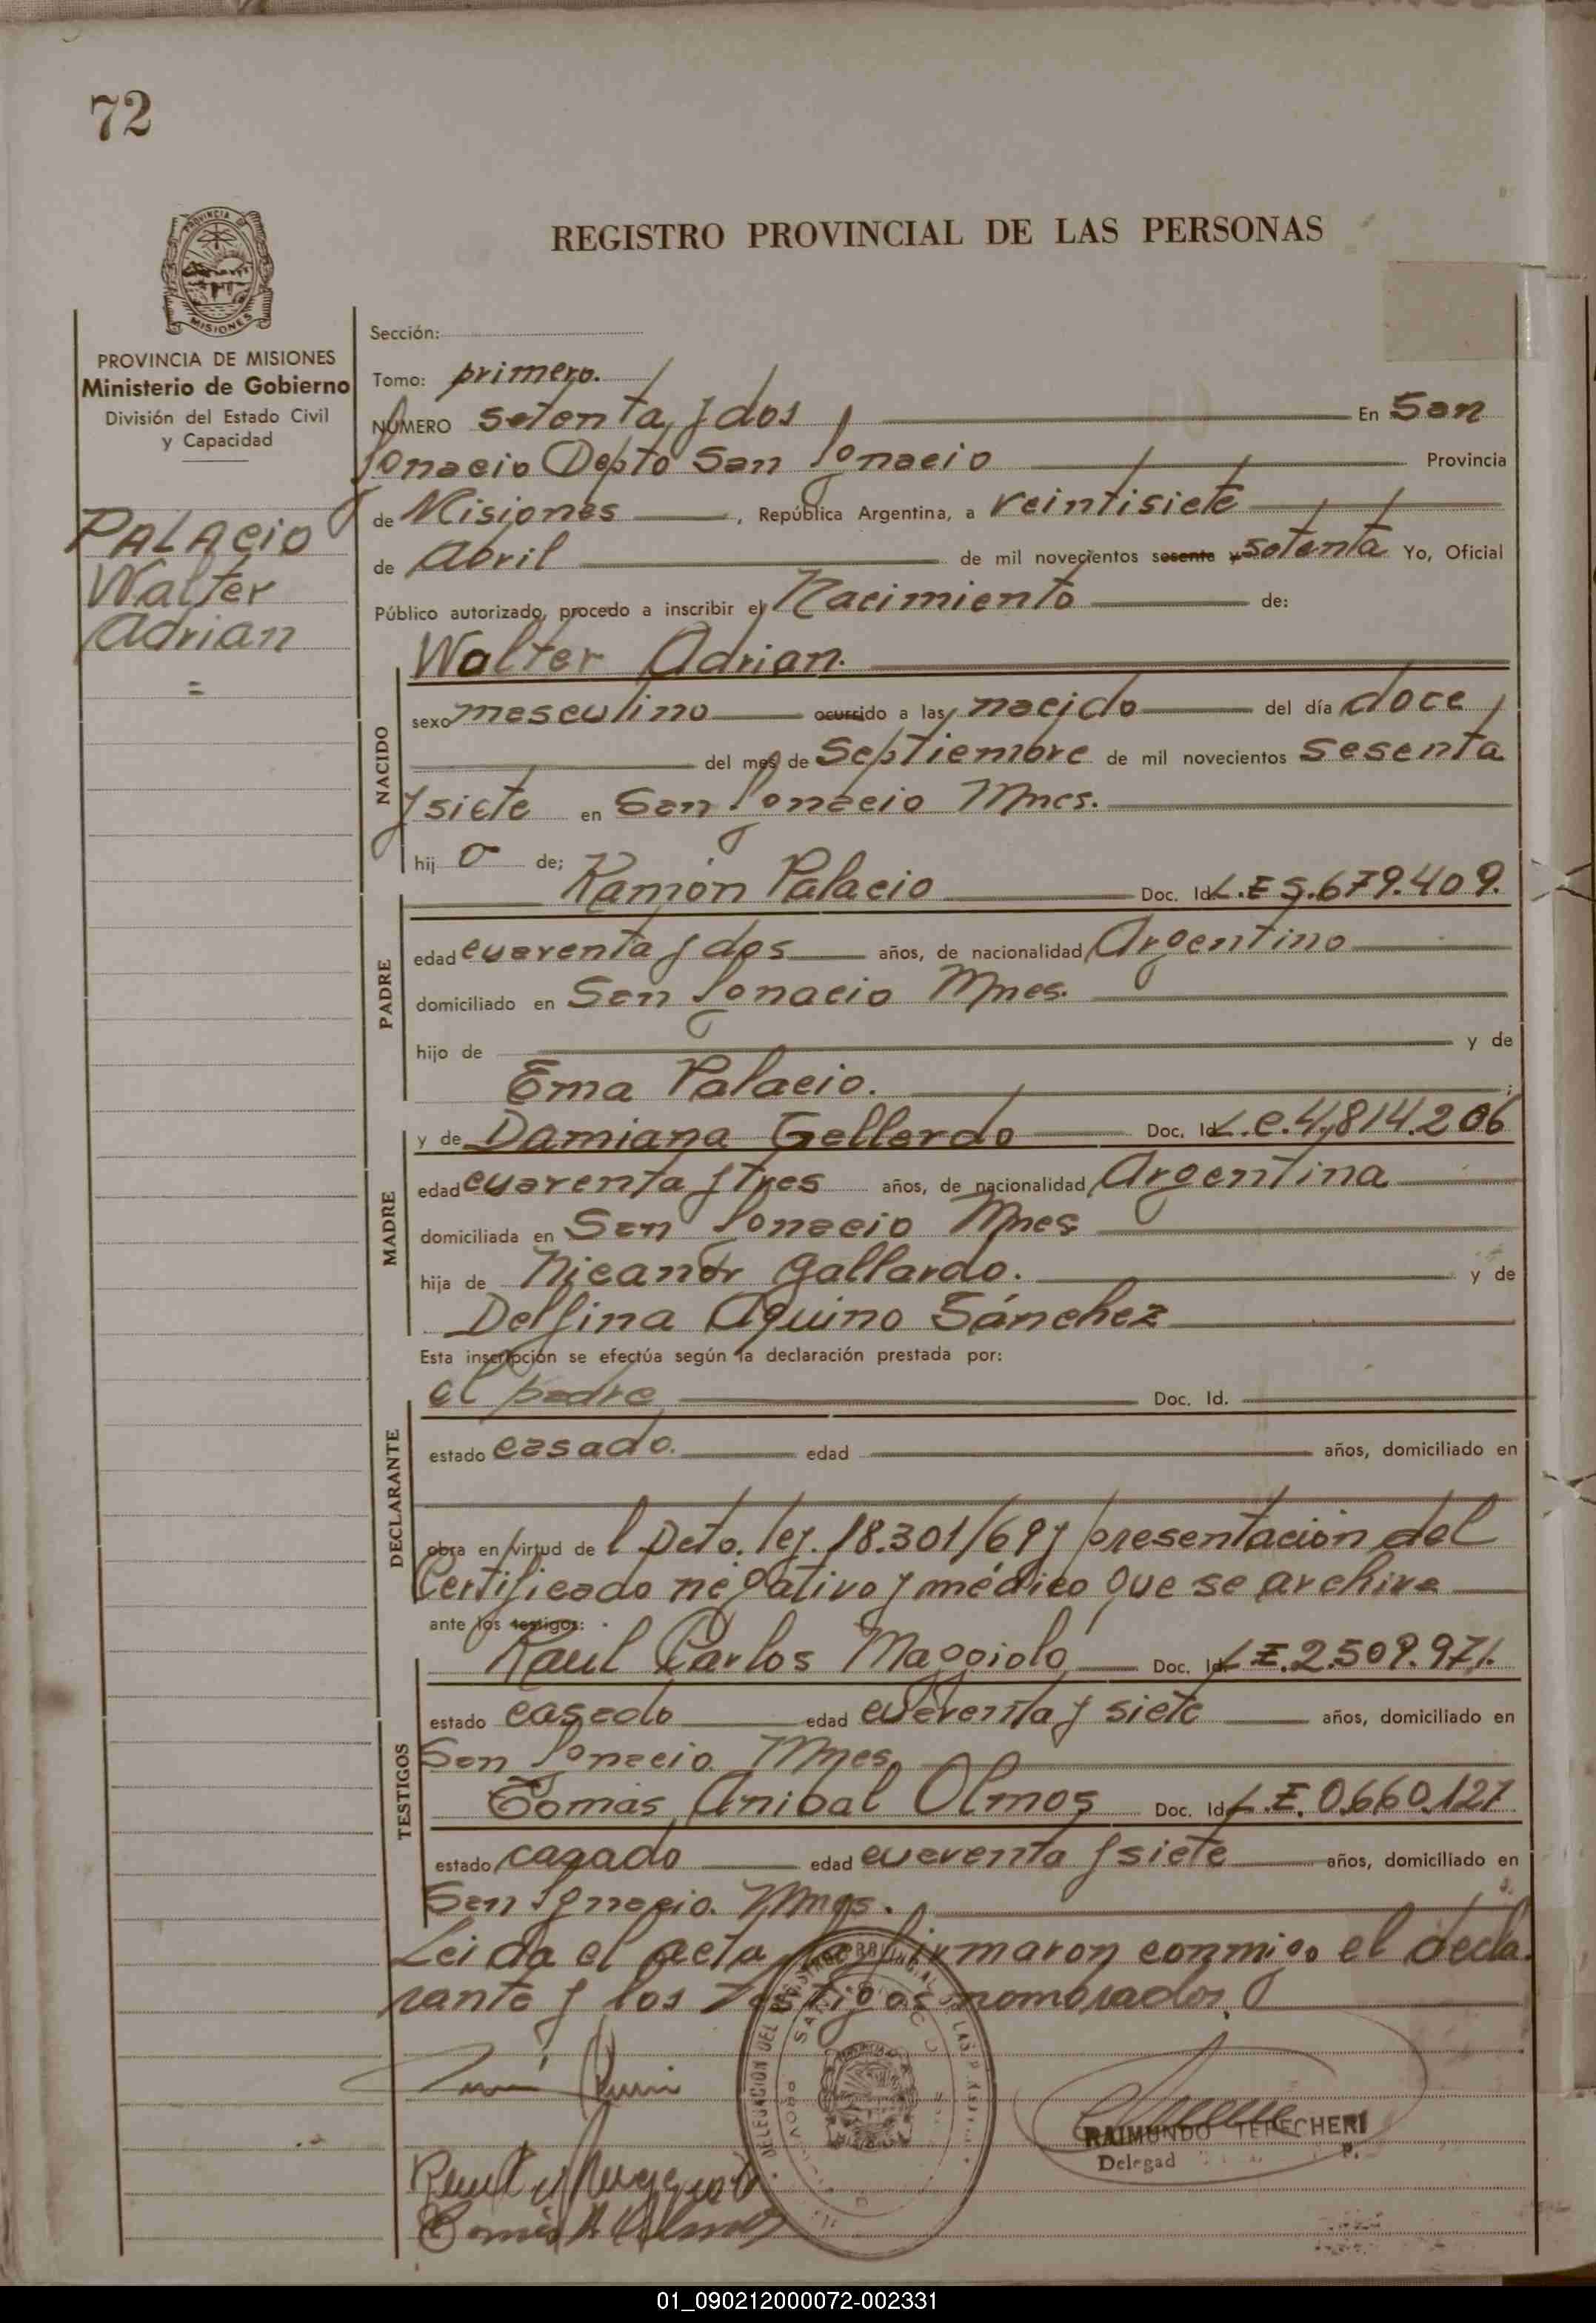 72
REGISTRO PROVINCIAL DE LAS PERSONAS
PROVINCIA DE
MISIONES
PROVINCIA DE MISIONES
Ministerio de Gobierno
División del Estado Civil
y Capacidad
PALAcio
Walter
Adrian
=
Sección:
Tomo: primero.
NÚMERO setenta y dos En San
Ignacio Depto San Ignacio Provincia
de Misiones, República Argentina, a veintisiete
de Abril de mil novecientos sesenta y setenta Yo, Oficial
Público autorizado, procedo a inscribir el Nacimiento de:
NACIDO
Walter Adrian.
sexo masculino ocurrido a las nacido del día doce
del mes de Septiembre de mil novecientos sesenta
y siete en San Ignacio Mnes.
hij o de;
PADRE
Ramón Palacio Doc. Id. L.E 5.679.409.
edad cuarenta y dos años, de nacionalidad Argentino
domiciliado en San Ignacio Mnes.
hijo de y de
Ema Palacio. ;
MADRE
y de Damiana Gallardo Doc. Id. L.C. 4.814.206
edad cuarenta y tres años, de nacionalidad Argentina
domiciliada en San Ignacio Mnes
hija de Nicanor Gallardo. y de
Delfina Aquino Sánchez
Esta inscripción se efectúa según la declaración prestada por:
DECLARANTE
el padre Doc. Id.
estado casado. edad años, domiciliado en
obra en virtud de l Dcto. ley. 18.301/69 y presentación del
Certificado negativo y médico que se archiva
ante los testigos:
TESTIGOS
Raul Carlos Maggiolo Doc. Id. L.E. 2.509.971.
estado casado edad cuarenta y siete años, domiciliado en
San Ignacio Mnes.
Tomás Anibal Olmos Doc. Id. L.E. 0.660.127
estado casado edad cuarenta y siete años, domiciliado en
San Ignacio. Mnes.
Leida el acta la firmaron conmigo el decla-
rante y los testigos nombrados.
DELEGACION DEL REGISTRO PROVINCIAL DE LAS
RAIMUNDO TEPECHERI
Delegad
01_090212000072-002331